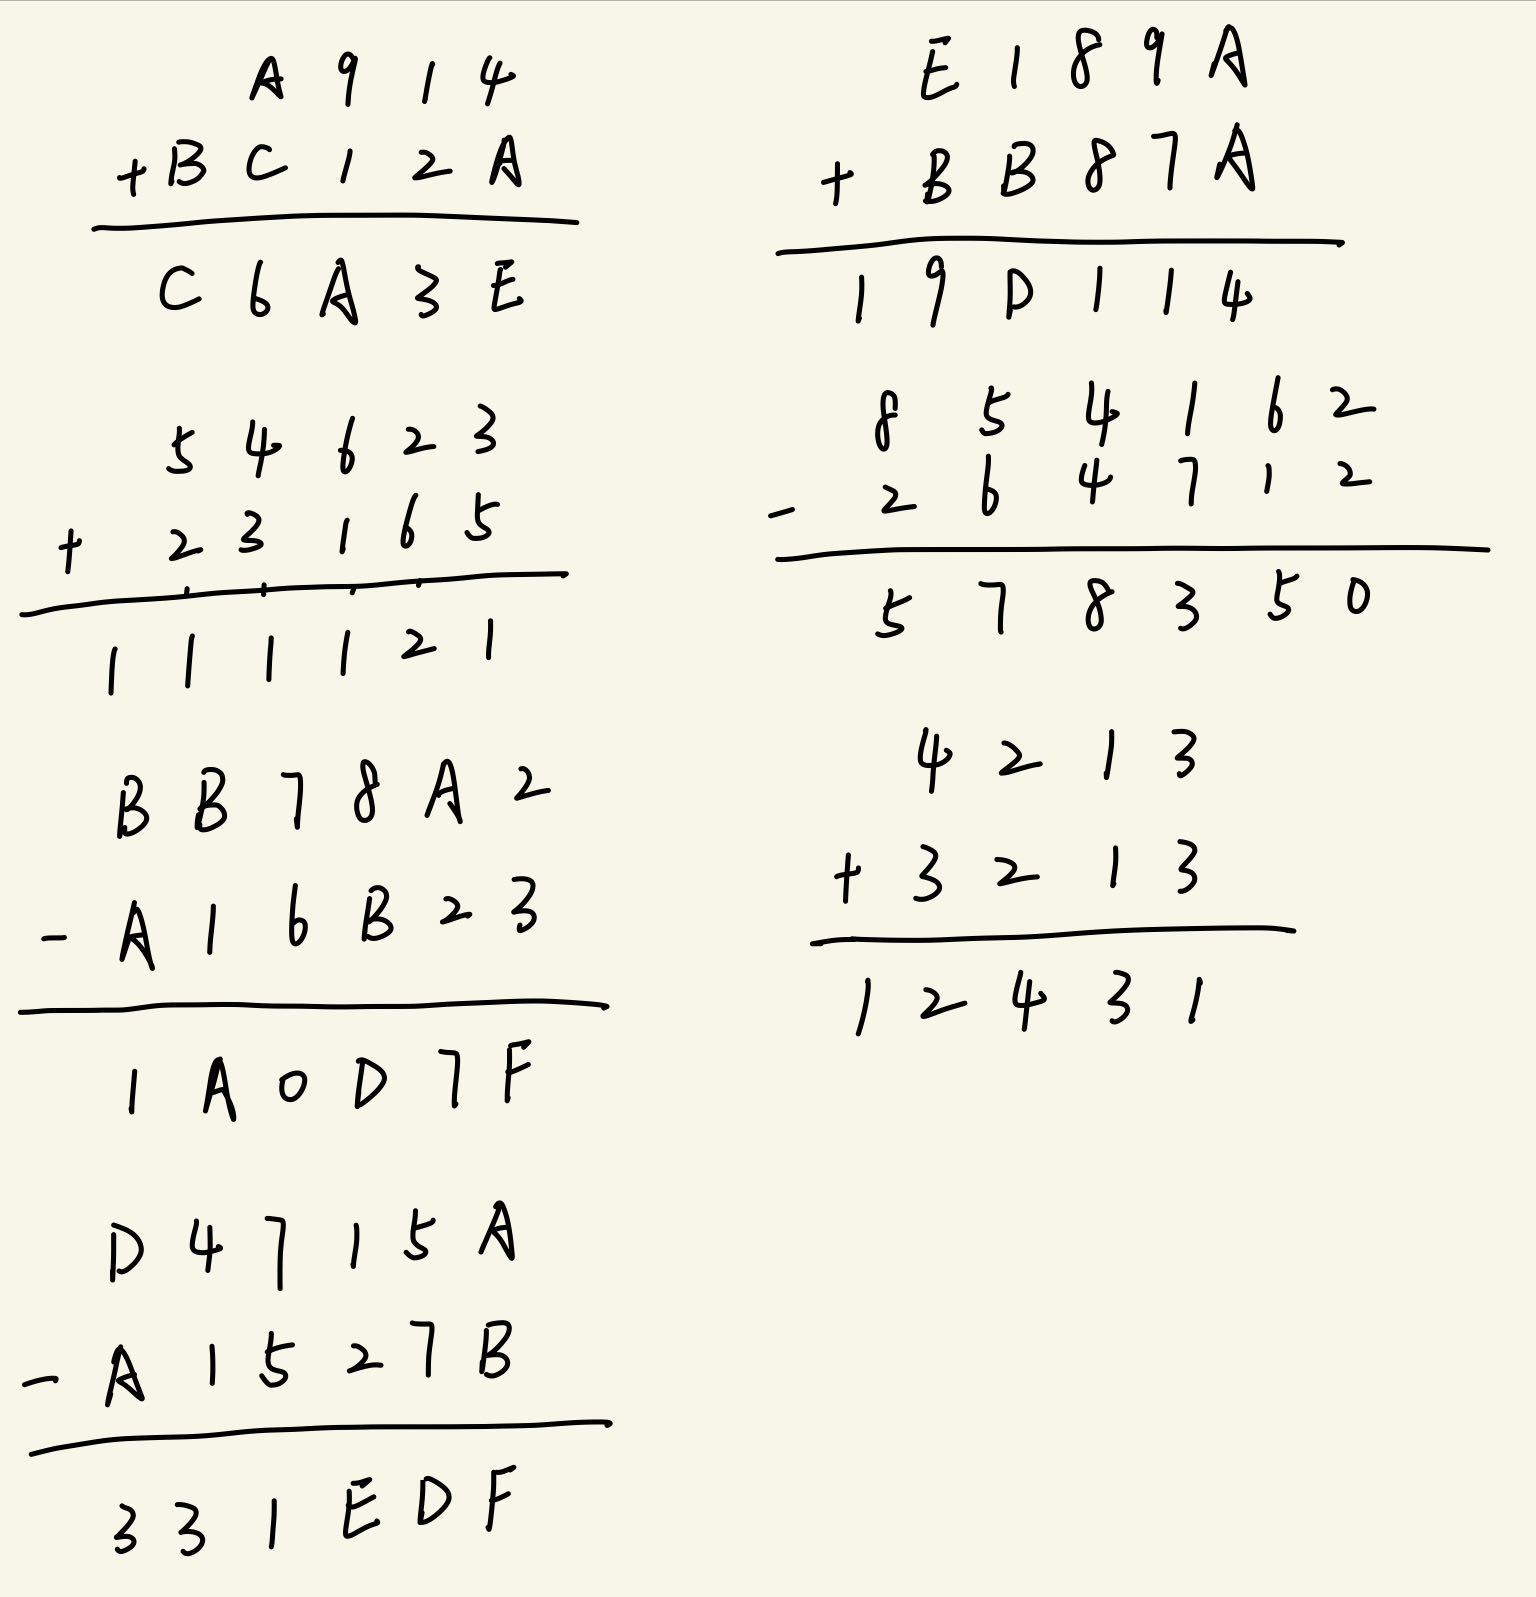 A 9 1 4
+ B C 1 2 A
C 6 A 3 E
5 4 6 2 3
+ 2 3 1 6 5
1 1 1 1 2 1
B B 7 8 A 2
- A 1 6 B 2 3
1 A 0 D 7 F
D 4 7 1 5 A
- A 1 5 2 7 B
3 3 1 E D F
E 1 8 9 A
+ B B 8 7 A
1 9 D 1 1 4
8 5 4 1 6 2
- 2 6 4 7 1 2
5 7 8 3 5 0
4 2 1 3
+ 3 2 1 3
1 2 4 3 1